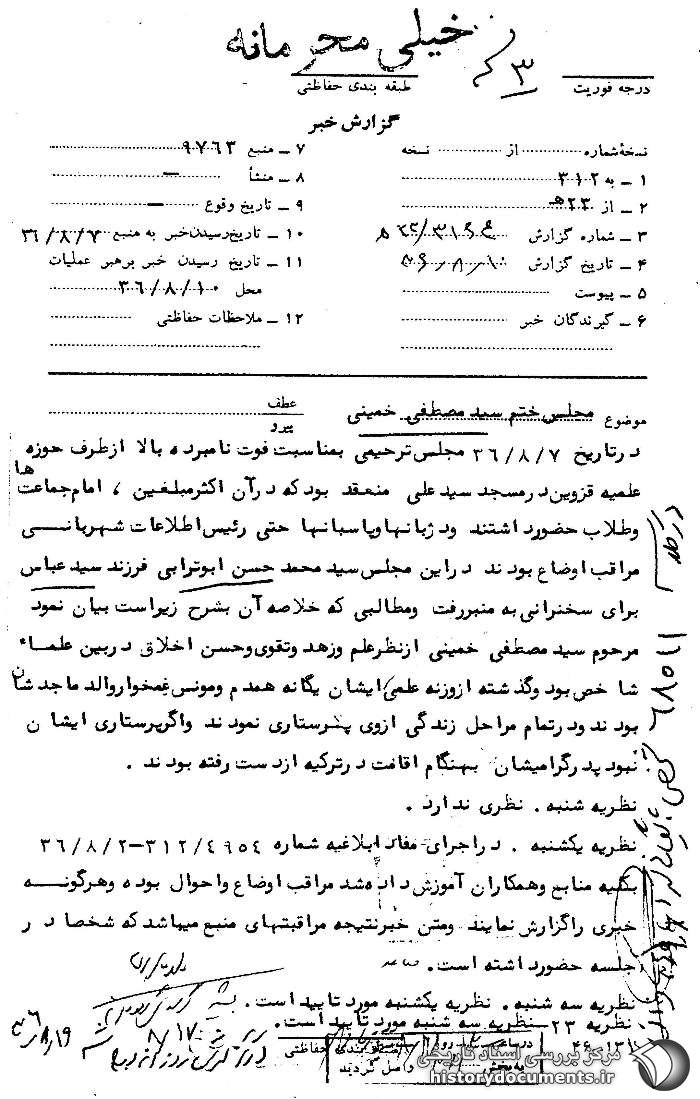 خیلی محرمانه
۳
درجه فوریت
طبقه بندی حفاظتی
گزارش خبر
نسخهٔ شماره .......... از .......... نسخه
۱ ـ به ۳۱۲
۲ ـ از ۲۳ هـ
۳ ـ شماره گزارش
۴ ـ تاریخ گزارش
۵ ـ پیوست
۶ ـ گیرندگان خبر
۷ ـ منبع ۹۷۶۳
۸ ـ منشأ —
۹ ـ تاریخ وقوع —
۱۰ ـ تاریخ رسیدن خبر به منبع ۳۶/۸/۷
۱۱ ـ تاریخ رسیدن خبر برهبر عملیات
محل ۳۶/۸/۱۰
۱۲ ـ ملاحظات حفاظتی
موضوع مجلس ختم سید مصطفی خمینی
عطف
پیرو
در تاریخ ۳۶/۸/۷ مجلس ترحیمی بمناسبت فوت نامبرده بالا از طرف حوزه ها
علمیه قزوین در مسجد سید علی منعقد بود که در آن اکثر مبلغین ، امام جماعت
وطلاب حضور داشتند ودژبانها وپاسبانها حتی رئیس اطلاعات شهربانی
مراقب اوضاع بودند در این مجلس سید محمد حسن ابوترابی فرزند سید عباس
برای سخنرانی به منبر رفت ومطالبی که خلاصه آن بشرح زیر است بیان نمود
مرحوم سید مصطفی خمینی از نظر علم وزهد وتقوی وحسن اخلاق در بین علماء
شاخص بود وگذشته از وزنه علمی ایشان یگانه همدم ومونس غمخوار والد ماجدشان
بودند ودر تمام مراحل زندگی از وی پرستاری نمودند واگر پرستاری ایشان
نبود پدر گرامیشان بهنگام اقامت در ترکیه از دست رفته بودند .
نظریه شنبه . نظری ندارد .
نظریه یکشنبه . در اجرای مفاد ابلاغیه شماره ۳۱۲/۴۹۵۴-۳۶/۸/۲
بکلیه منابع وهمکاران آموزش داده شد مراقب اوضاع واحوال بوده وهرگونه
خبری را گزارش نمایند ومتن خبر نتیجه مراقبتهای منبع میباشد که شخصا در
جلسه حضور داشته است .
نظریه سه شنبه . نظریه یکشنبه مورد تایید است .
نظریه ۲۳ — نظریه سه شنبه مورد تایید است .
طبقه بندی حفاظتی
واصل گردید
مرکز بررسی اسناد تاریخی
historydocuments.ir